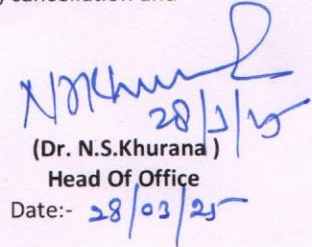 cancellation and
NSKhurana
28/3/25
(Dr. N.S.Khurana )
Head Of Office
Date:- 28/03/25